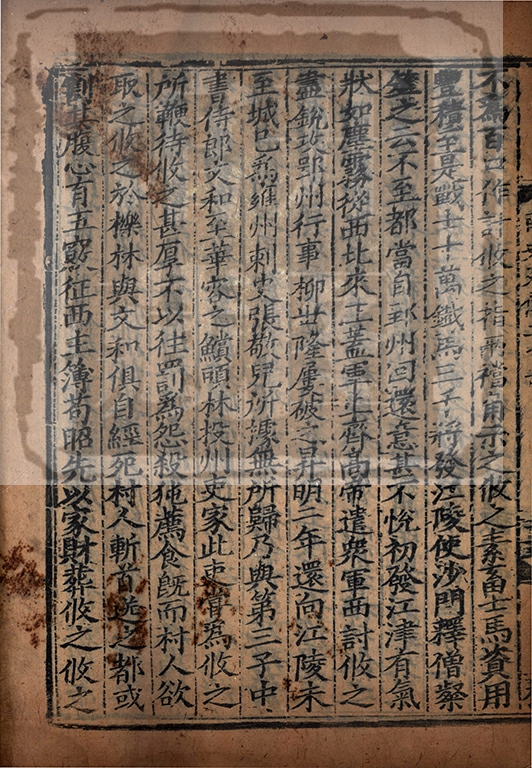 不為百口作計攸之指兩襠角示之攸之素畜士馬資用
豐積至是戰士十萬鐵馬三千將發江陵使沙門釋僧粲
筮之云不至都當自郢州回還意甚不悅初發江津有氣
狀如塵霧從西北來正蓋軍上齊高帝遣衆軍西討攸之
盡銳攻郢州行事柳世隆屢破之昇明二年還向江陵未
至城已爲雍州刺史張敬兒所據無所歸乃與第三子中
書侍郎文和至華容之鱝頭林投州吏家此吏甞爲攸之
所鞭待攸之甚厚不以往罰爲怨殺㹠薦食既而村人欲
取之攸之於櫟林與文和俱自經死村人斬首送之都或
割其腹心有五竅征西主簿苟昭先以家財葬攸之攸之